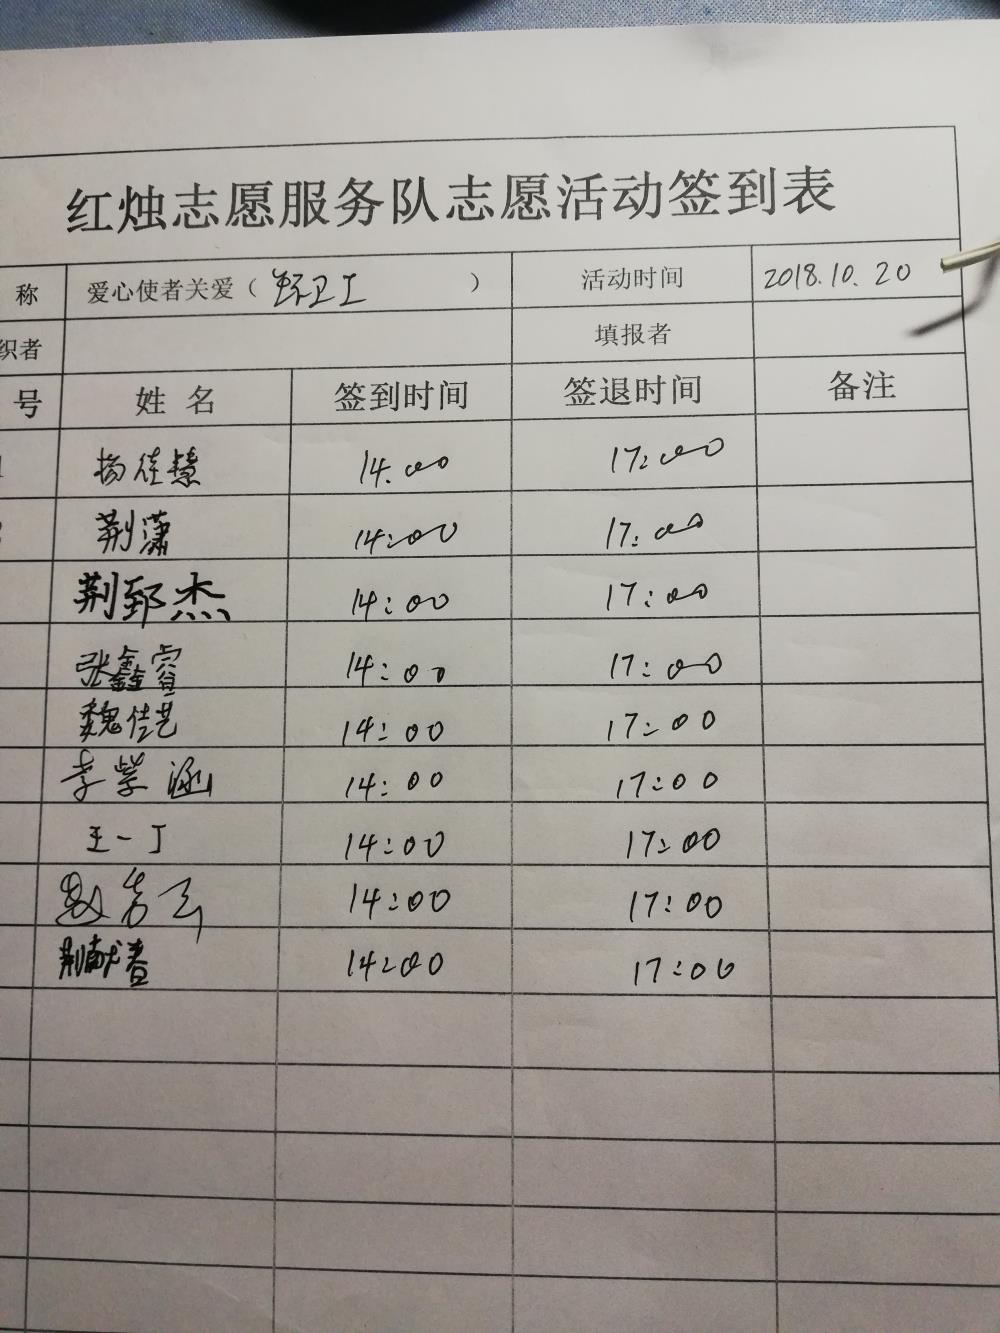 红烛志愿服务队志愿活动签到表
称 爱心使者关爱（环卫工） 活动时间 2018.10.20
织者 填报者
号 姓名 签到时间 签退时间 备注
杨佳慧 14:00 17:00
荆潇 14:00 17:00
荆郅杰 14:00 17:00
张鑫睿 14:00 17:00
魏佳艺 14:00 17:00
李紫涵 14:00 17:00
王一丁 14:00 17:00
14:00 17:00
荆献春 14:00 17:00